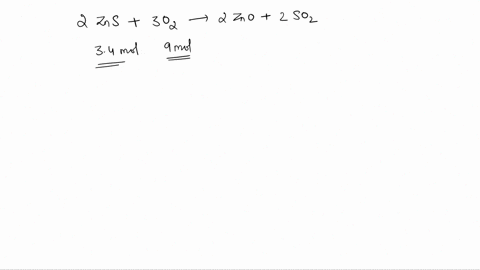 2 ZnS + 3O₂ → 2 ZnO + 2 SO₂
3.4 mol 9 mol